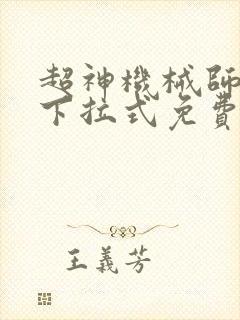 超神機械師
下拉式免費
王義芳